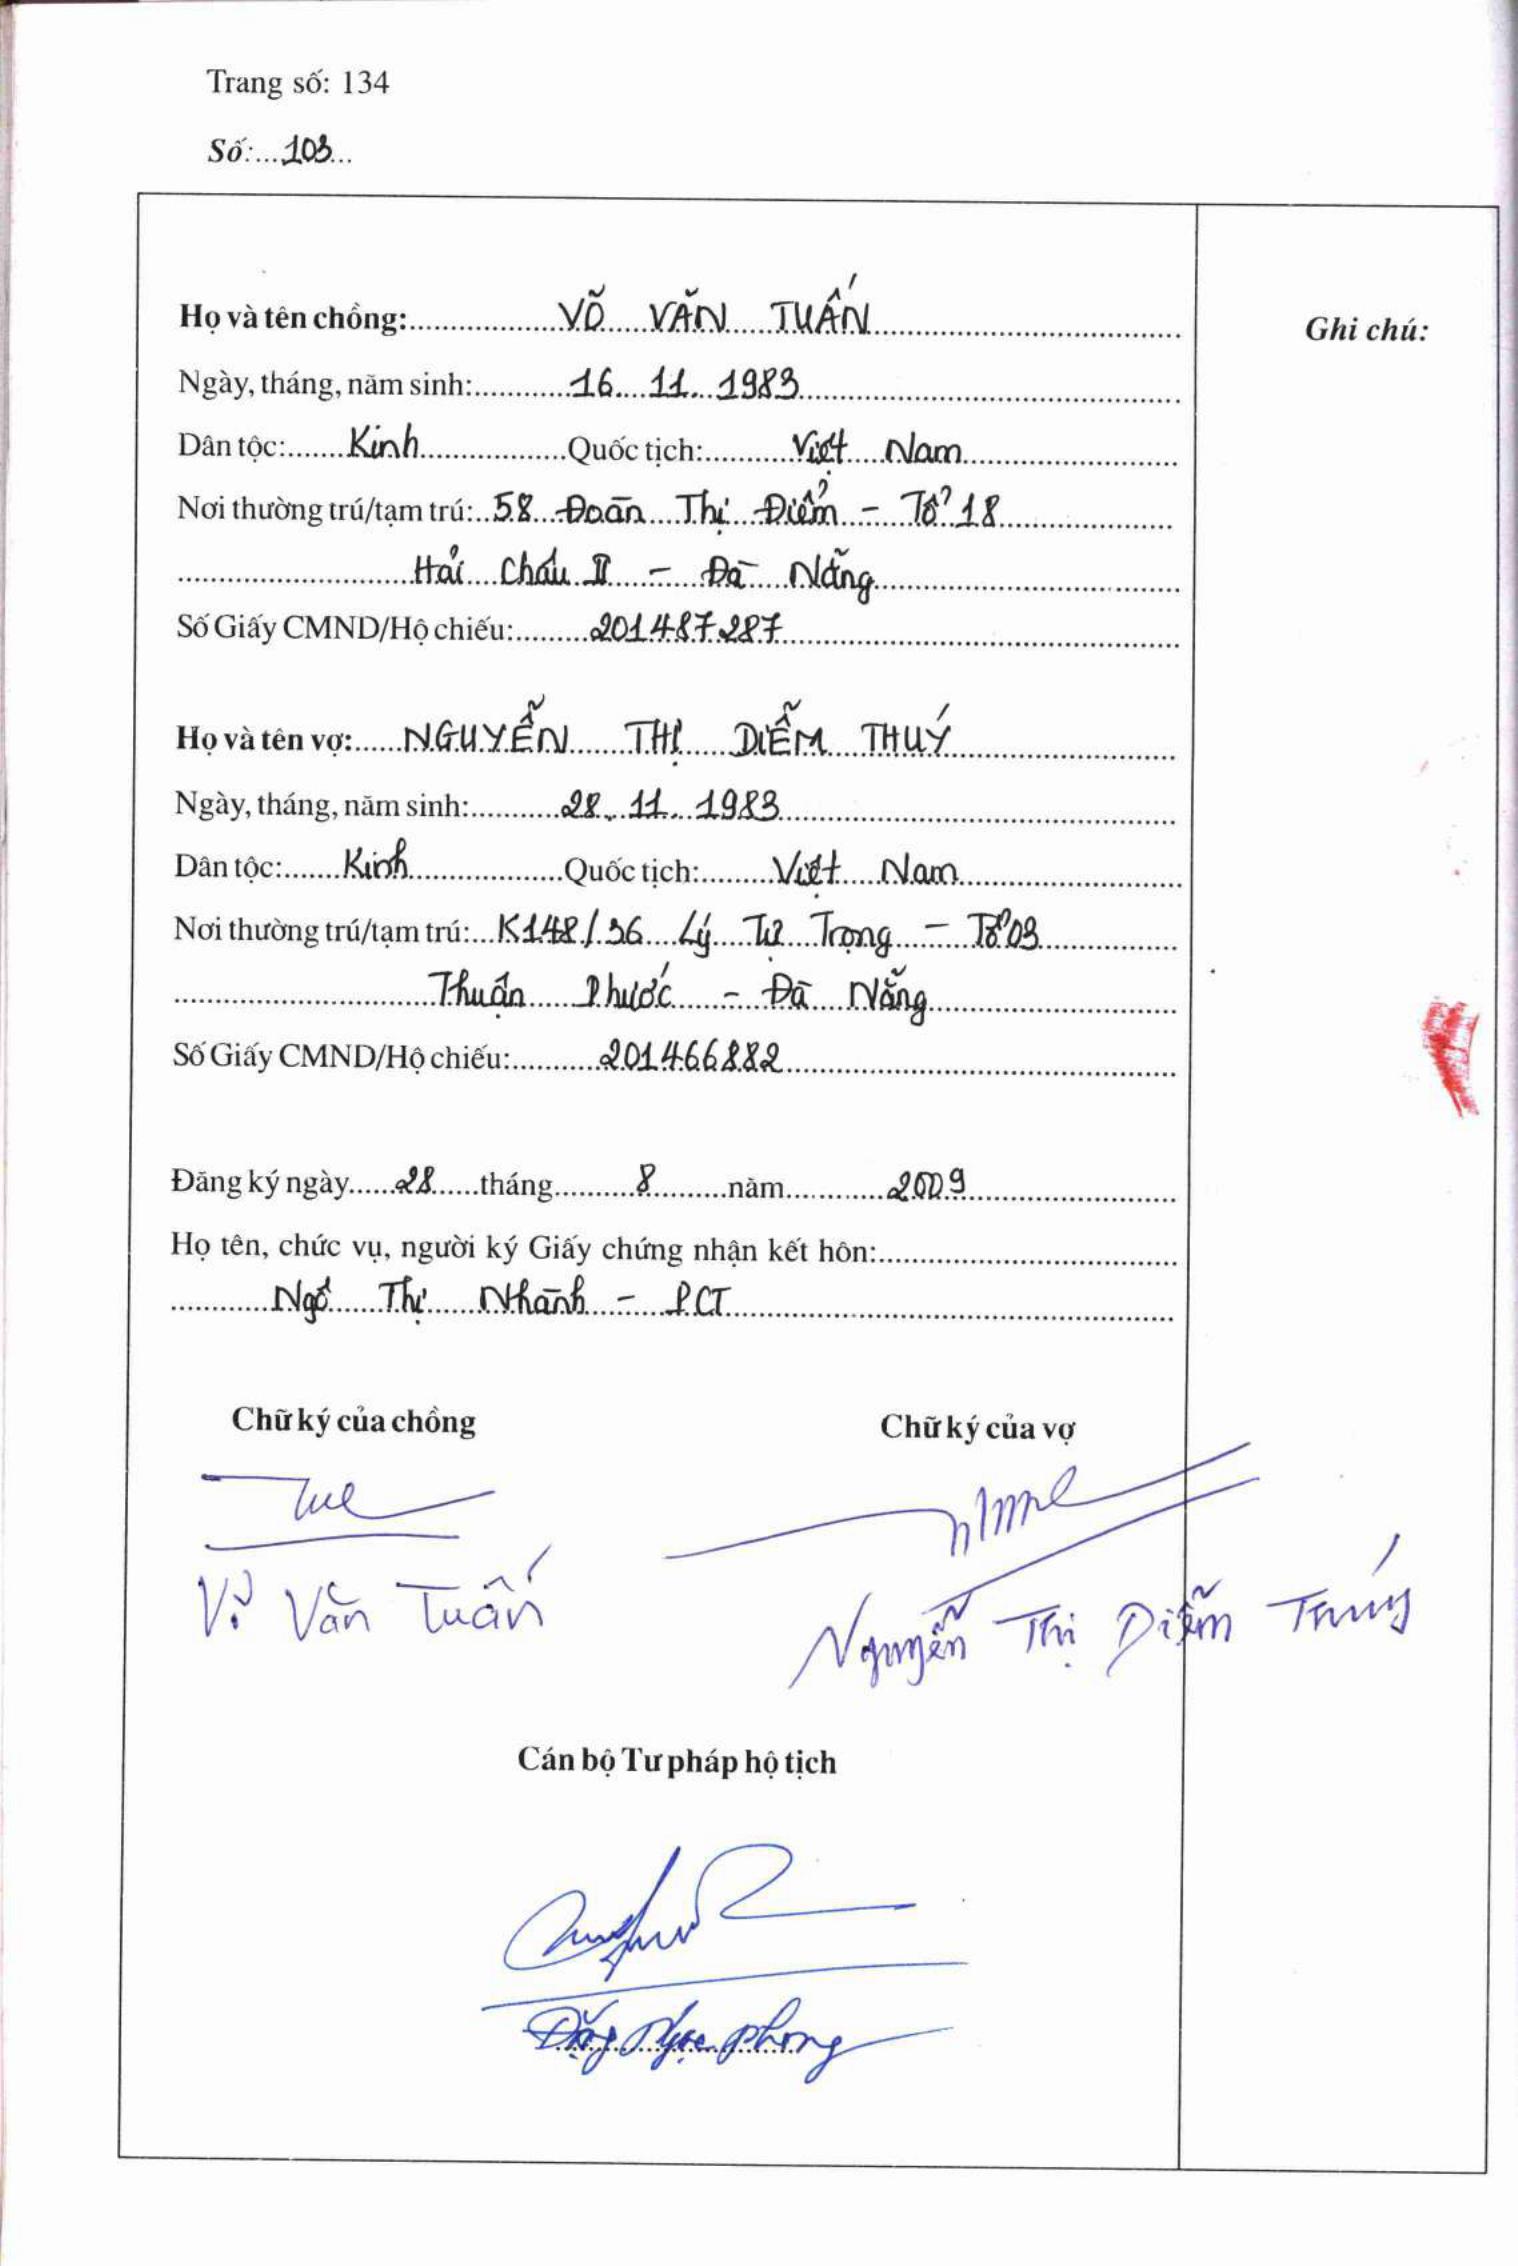 Trang số: 134
Số: 103
Họ và tên chồng: VÕ VĂN TUẤN
Ghi chú:
Ngày, tháng, năm sinh: 16. 11. 1983
Dân tộc: Kinh Quốc tịch: Việt Nam
Nơi thường trú/tạm trú: 58 Đoàn Thị Điểm - Tổ 18
Hải Châu II - Đà Nẵng
Số Giấy CMND/Hộ chiếu: 201487287
Họ và tên vợ: NGUYỄN THỊ DIỄM THUÝ
Ngày, tháng, năm sinh: 28. 11. 1983
Dân tộc: Kinh Quốc tịch: Việt Nam
Nơi thường trú/tạm trú: K148/36 Lý Tự Trọng - Tổ 03
Thuận Phước - Đà Nẵng
Số Giấy CMND/Hộ chiếu: 201466882
Đăng ký ngày 28 tháng 8 năm 2009
Họ tên, chức vụ, người ký Giấy chứng nhận kết hôn:
Ngô Thị Nhành - PCT
Chữ ký của chồng Chữ ký của vợ
Võ Văn Tuấn
Nguyễn Thị Diễm Thuý
Cán bộ Tư pháp hộ tịch
Đặng Ngọc Phong